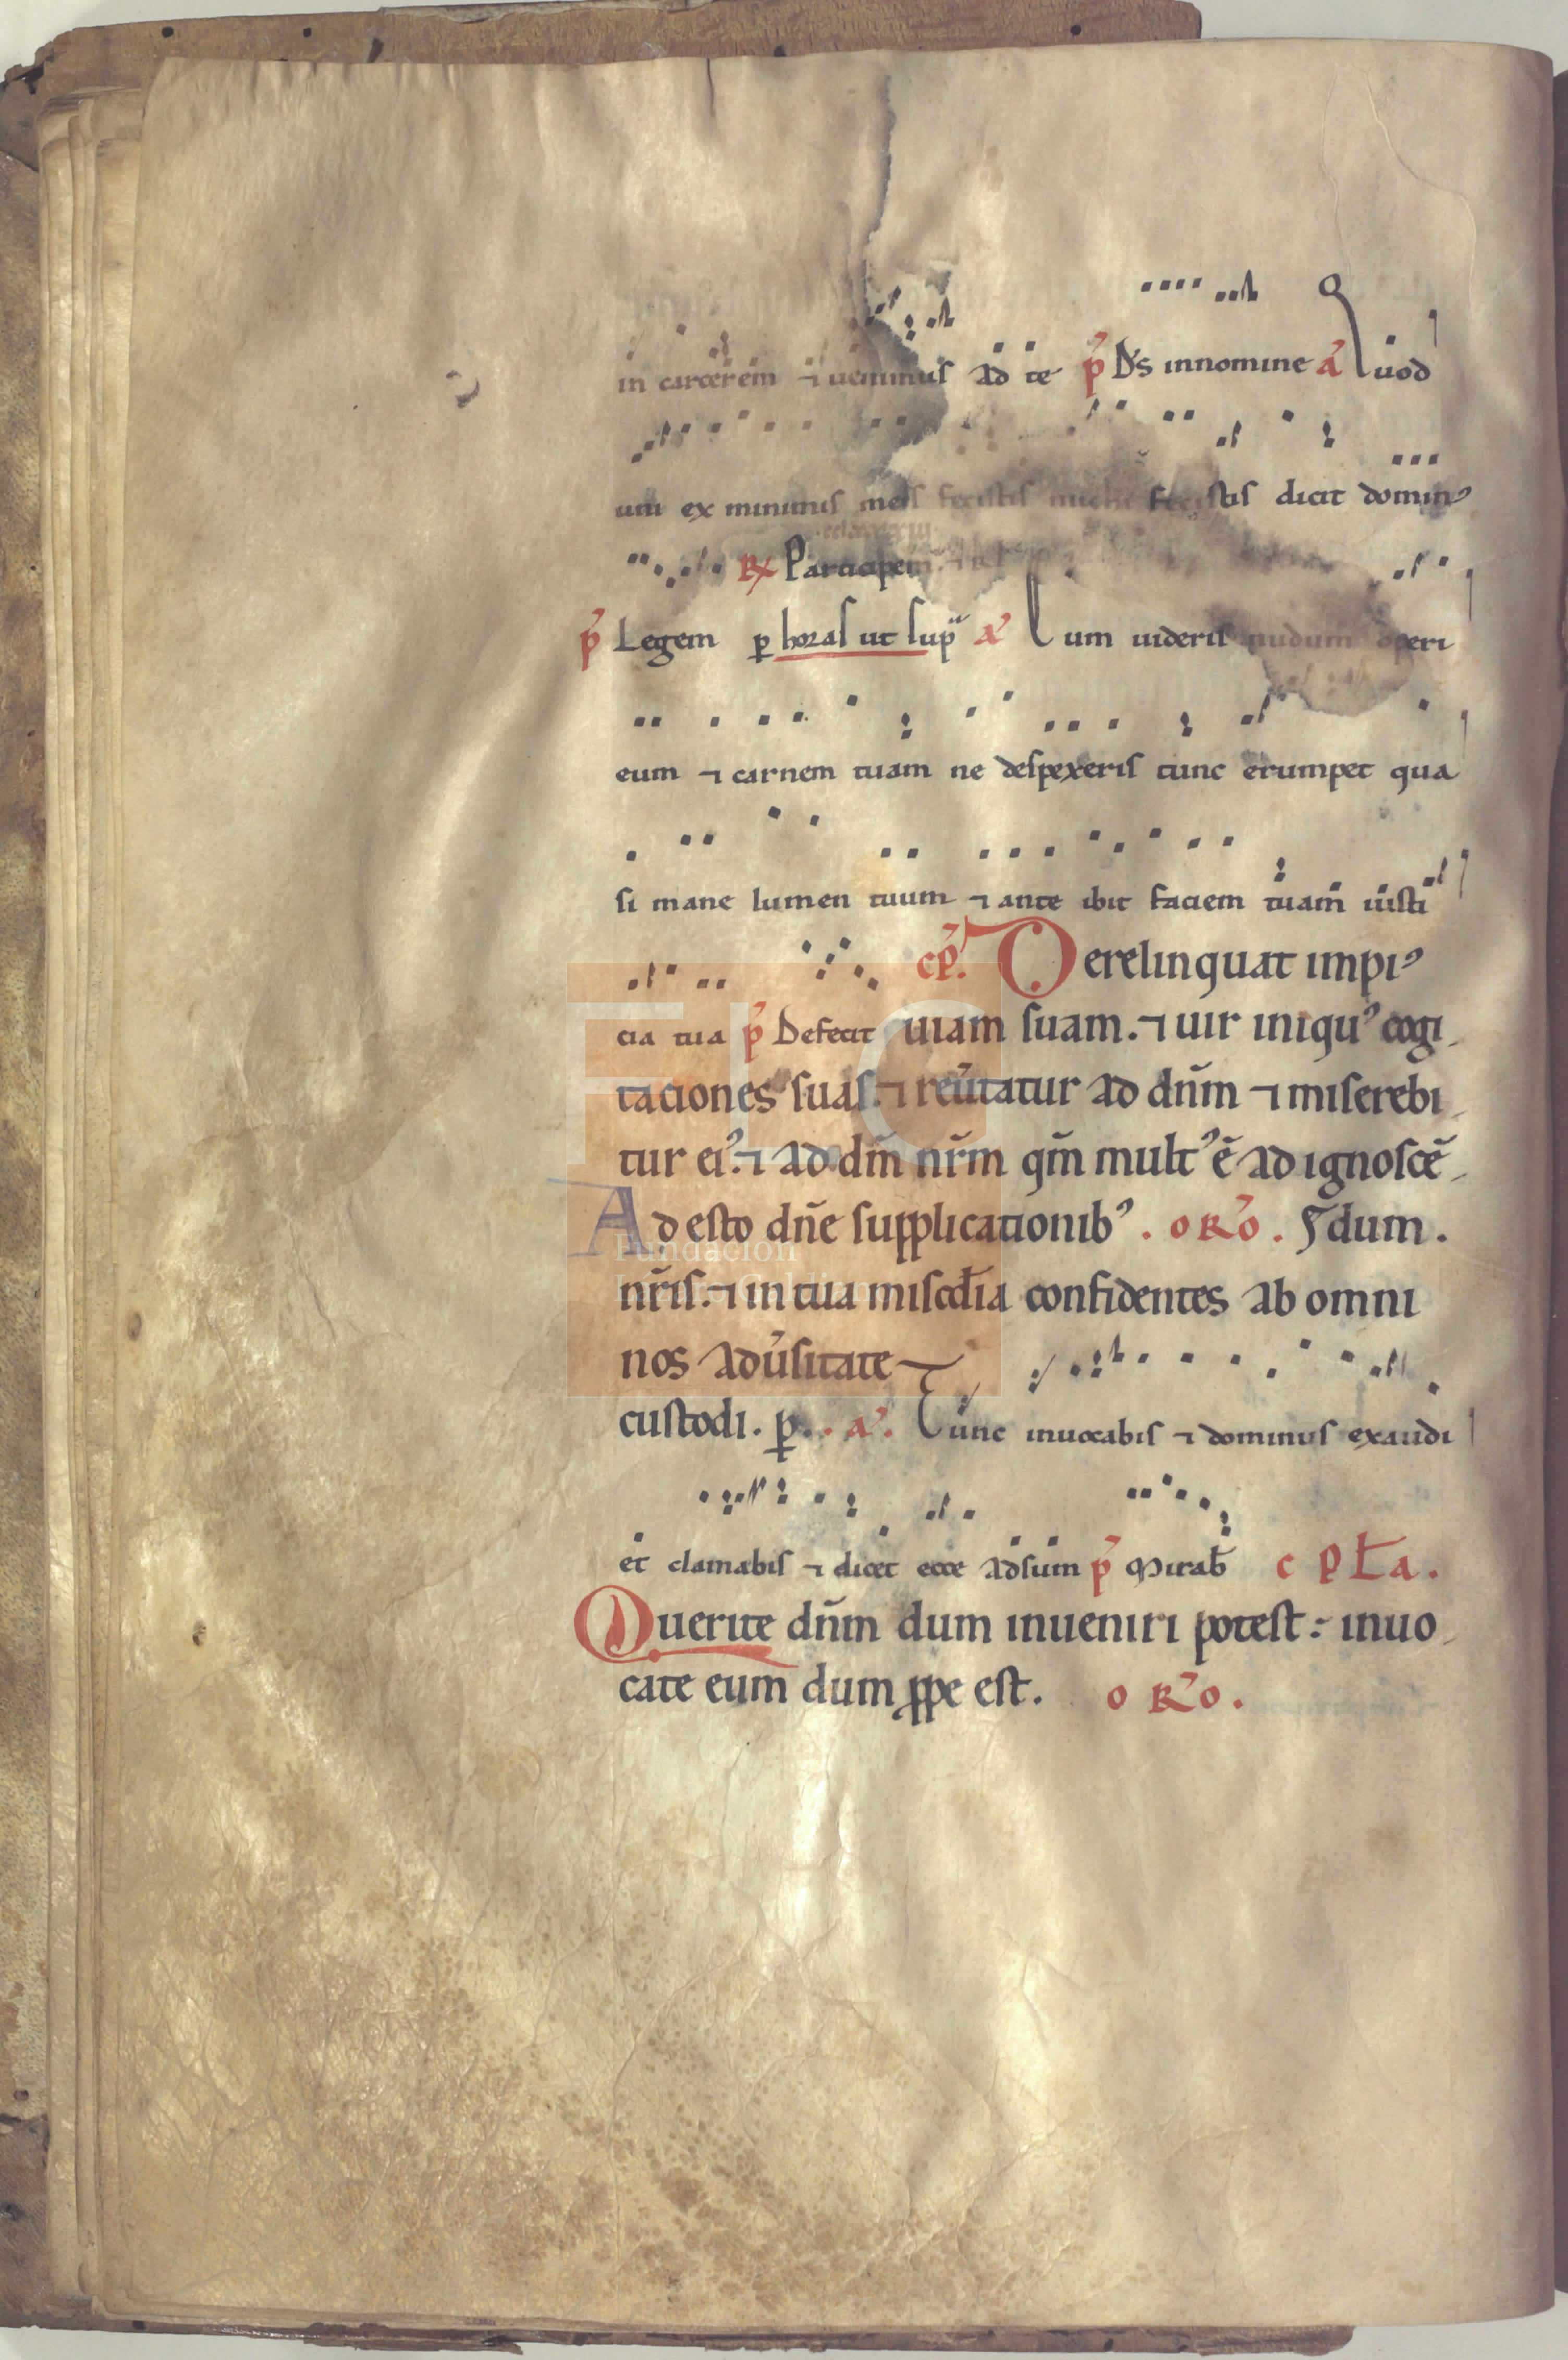 in carcerem ⁊ uenimus ad te p̃ D̃s innomine a᷒ Quod
uni ex minimis meis fecistis michi fecistis dicit domin᷒
R℣ Participem
p̃ Legem ꝑ horas ut sup̃ a᷒ Cum uideris nudum operi
eum ⁊ carnem tuam ne despexeris tunc erumpet qua
si mane lumen tuum ⁊ ante ibit faciem tuam iusti
cia tua p̃ Defecit
cp̃. Derelinquat impi᷒
uiam suam. ⁊ uir iniqu᷒ cogi
taciones suas. ⁊ reũtatur ad dñm ⁊ miserebi
tur ei᷒. ⁊ ad dm̃ nr̃m qm̃ mult᷒ ẽ ad ignoscẽ
dum.
Adesto dñe supplicationib᷒. oRo.
nr̃is. ⁊ in tua misc̃dia confidentes ab omni
nos adũsitate
custodi. ꝑ. . a᷒. Tunc inuocabis ⁊ dominus exaudi
et clamabis ⁊ dicet ecce adsum p̃ Mirab̃ c pla.
Querite dñm dum inueniri potest: inuo
cate eum dum ꝓpe est. oRo.
FLG
Fundación